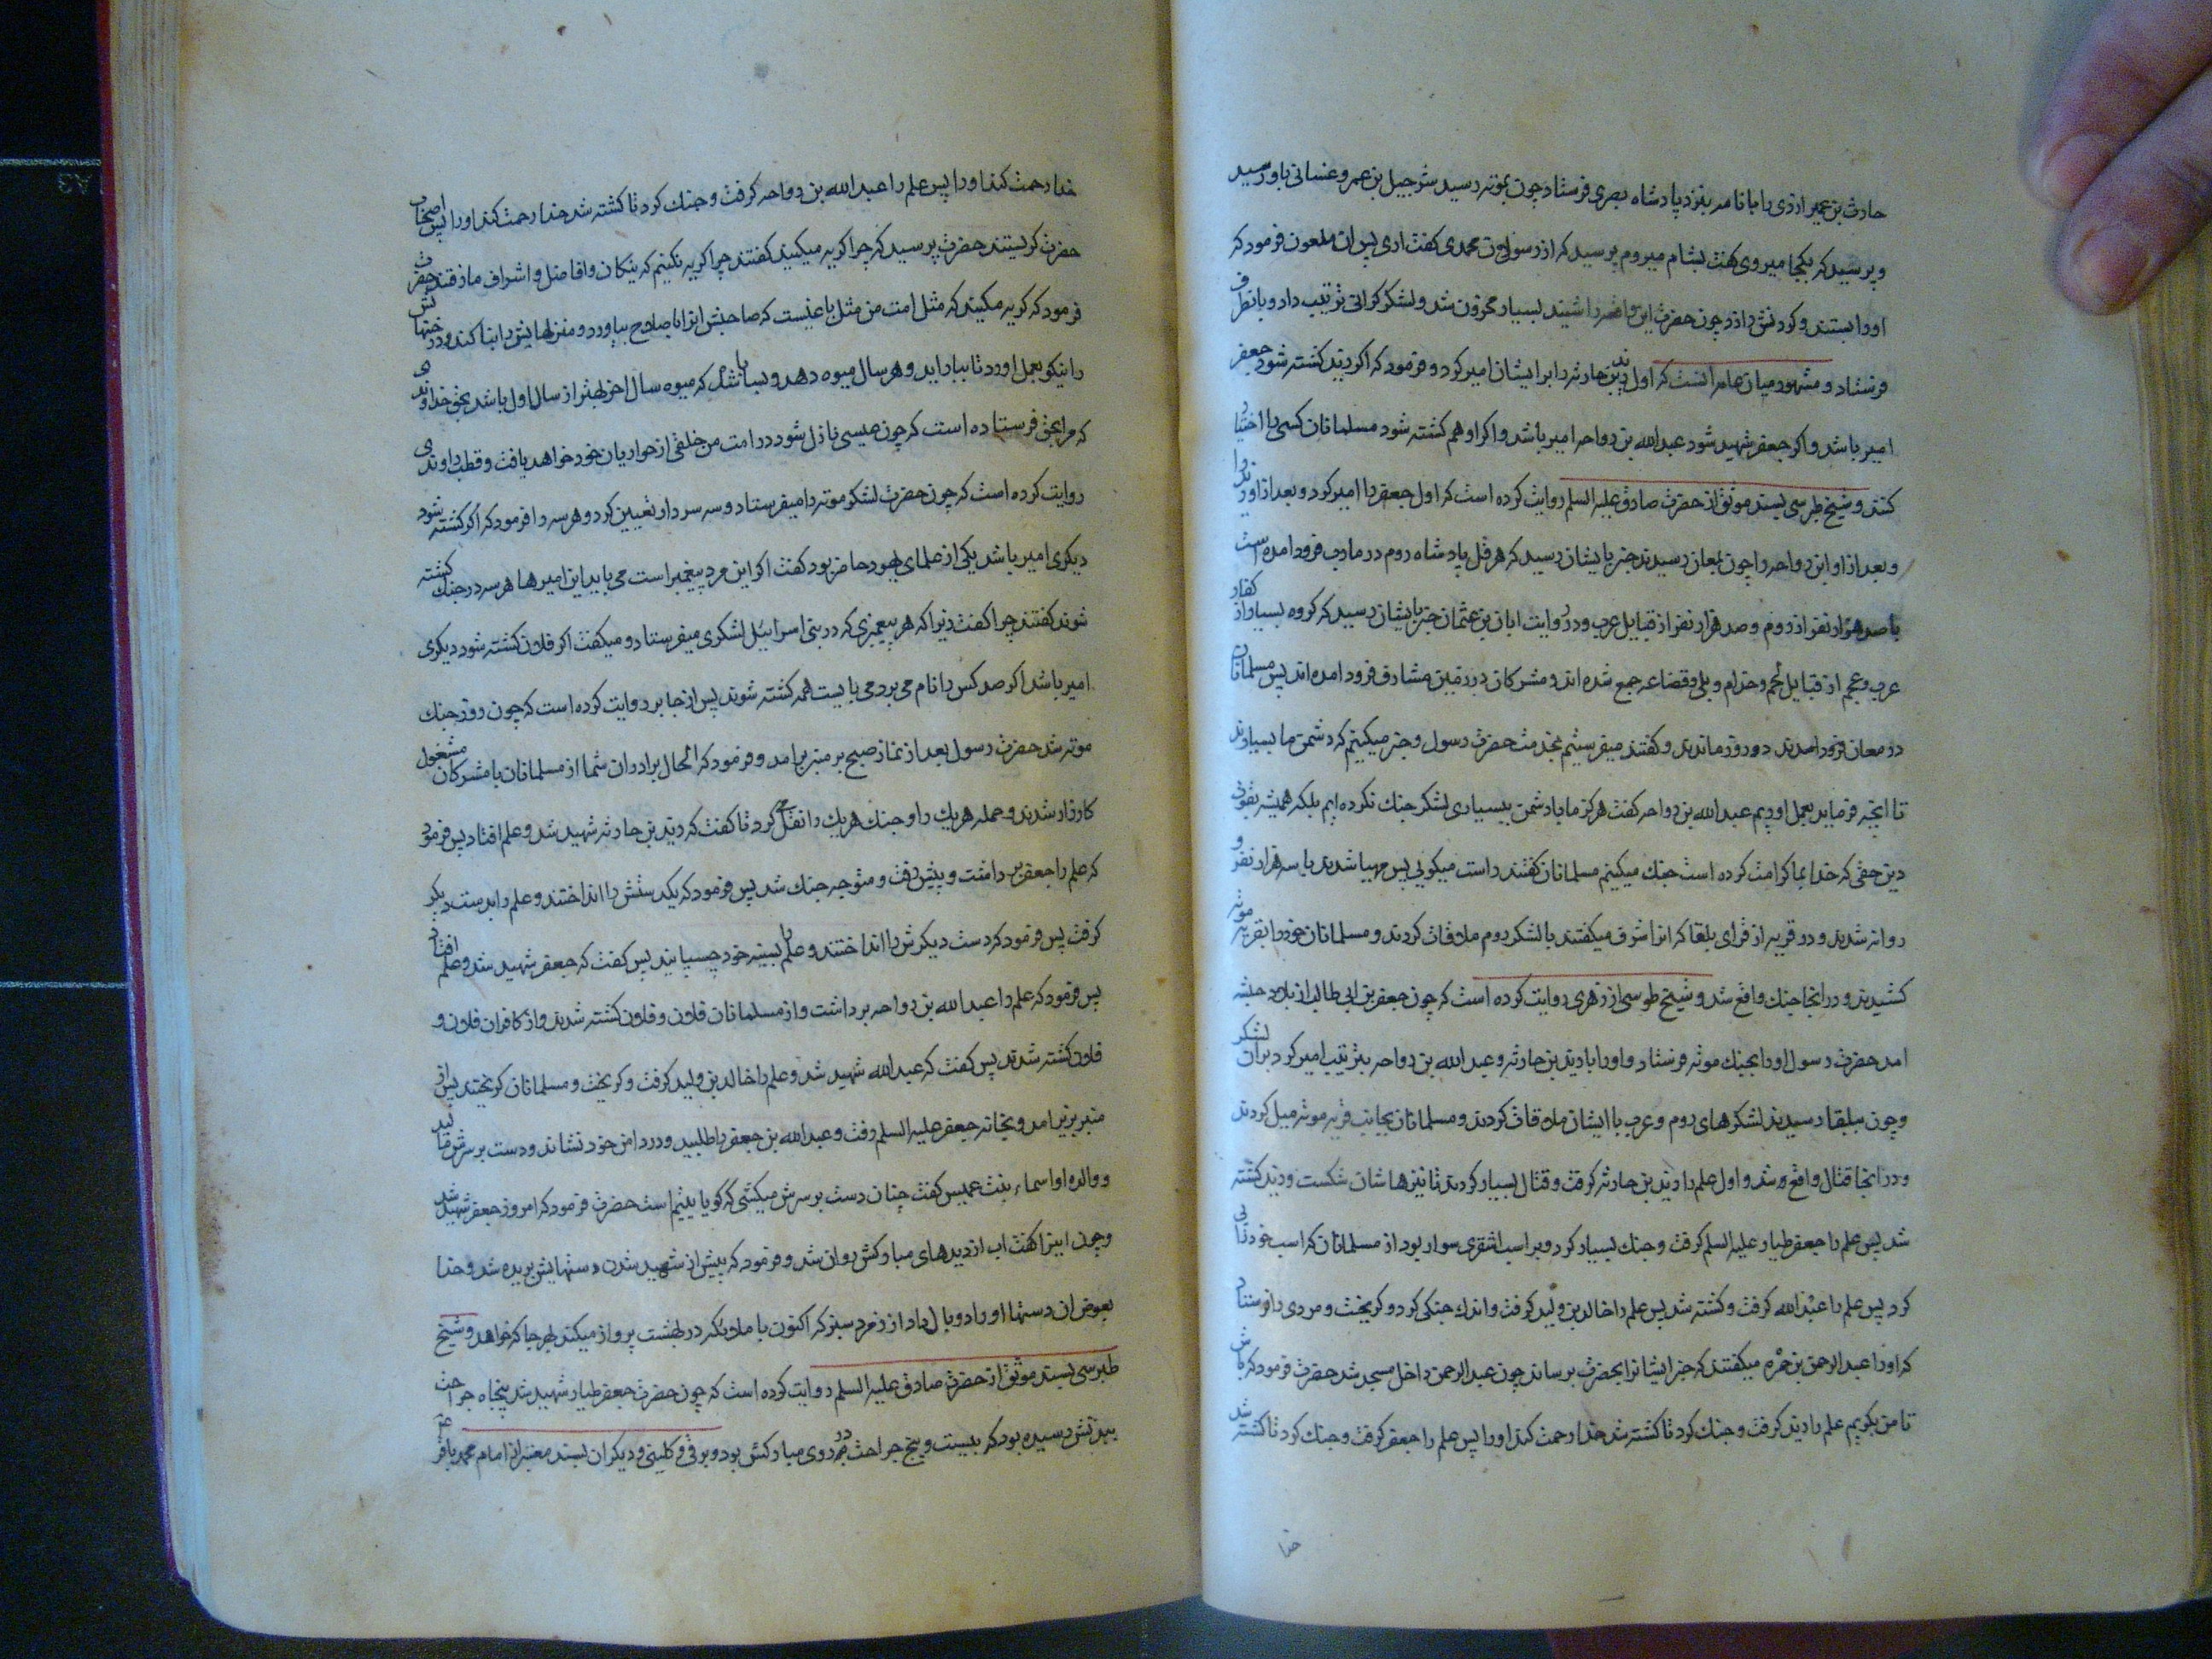 حارث بن عمیر ازدی را با نامه بنزد پادشاه بصری فرستاد چون بموته رسید شرجیل بن عمرو غسانی باو رسید
و پرسید که بکجا میروی گفت بشام میروم پرسید که از رسولان محمدی گفت اری پس ان ملعون فرمود که
او را بستند و کردنش را زد چون حضرت این واقعه را شنید بسیار محزون شد و لشکر کرانی ترتیب داد و بانطرف
فرستاد و مشهور میان عامه انست که اول زید بن حارثه را بر ایشان امیر کرد و فرمود که اکر زید کشته شود جعفر
امیر باشد و اکر جعفر شهید شود عبد الله بن رواحه امیر باشد و اکر او هم کشته شود مسلمانان کسی را اختیار
کنند و شیخ طبرسی بسند موثق از حضرت صادق علیه السلم روایت کرده است که اول جعفر را امیر کرد و بعد از او زید را
و بعد از او ابن رواحه را چون بمعان رسیدند خبر بایشان رسید که هرقل پادشاه روم در مارب فرود امده است
با صد هزار نفر از روم و صد هزار نفر از قبایل عرب و در روایت ابان بن عثمان خبر بایشان رسید که کروه بسیار از کفار
عرب و عجم از قبایل لخم و حذام و بلی و قضاعه جمع شده اند و مشرکان در زمین مشارق فرود امده اند پس مسلمانان
در معان فرود امدند دو روز ماندند و کفتند میفرستیم بخدمت حضرت رسول و خبر میکنیم که دشمن ما بسیارند
تا انچه فرماید بعمل اوریم عبد الله بن رواحه کفت هرکز ما با دشمن ببسیاری لشکر جنك نکرده ایم بلکه همیشه بقوت
دین حقی که خدا بما کرامت کرده است جنك میکنیم مسلمانان کفتند راست میکویی پس مهیا شدند با سه هزار نفر و
روانه شدند و در قریه از قرای بلقا که انرا شرف میکفتند با لشکر روم ملاقات کردند و مسلمانان خود را بقریه موته
کشیدند و در انجا جنك واقع شد و شیخ طوسی از زهری روایت کرده است که چون جعفر بن ابی طالب از بلاد حبشه
امد حضرت رسول او را بجنك موته فرستاد و او را با زید بن حارثه و عبد الله بن رواحه بترتیب امیر کرد بران لشکر
و چون ببلقا رسیدند لشکرهای روم و عرب با ایشان ملاقات کردند و مسلمانان بجانب قریه موته میل کردند
و در انجا قتال واقع شد و اول علم را زید بن حارثه کرفت و قتال بسیار کردند تا نیزها شان شکست و زید کشته
شد پس علم را جعفر طیار علیه السلم کرفت و جنك بسیار کرد و بر اسب اشقری سوار بود از مسلمانان که اسب خود را پی
کرد پس علم را عبد الله کرفت و کشته شد پس علم را خالد بن ولید کرفت و اندك جنکی کرد و کریخت و مردی را فرستاد
که او را عبد الرحمن بن سمره میکفتند که خبر ایشانرا بحضرت برساند چون عبد الرحمن داخل مسجد شد حضرت فرمود که باش
تا من بکویم علم را زید کرفت و جنك کرد تا کشته شد خدا رحمت کند او را پس علم را جعفر کرفت و جنك کرد تا کشته شد
خدا
خدا رحمت کند او را پس علم را عبد الله بن رواحه کرفت و جنك کرد تا کشته شد خدا رحمت کند او را پس اصحاب
حضرت کریستند حضرت پرسید که چرا کریه میکنید کفتند چرا کریه نکنیم که نیکان و افاضل و اشراف ما رفتند حضرت
فرمود که کریه مکنید که مثل امت من مثل باغیست که صاحبش انرا باصلاح بیاورد و منزلهایش را بنا کند و درختهایش
را نیکو بعمل اورد تا ببار اید و هر سال میوه دهد و بسا باشد که میوه سال اخر بهتر از سال اول باشد بحق خداوندی
که مرا بحق فرستاده است که چون عیسی نازل شود در امت من خلفی از حواریان خود خواهد یافت و قطب راوندی
روایت کرده است که چون حضرت لشکر موته را میفرستاد و سه سردار تعیین کرد و هر سه را فرمود که اکر کشته شود
دیکری امیر باشد یکی از علمای یهود حاضر بود کفت اکر این مرد پیغمبر است می باید این امیرها هر سه در جنك کشته
شوند کفتند چرا کفت زیرا که هر پیغمبری که در بنی اسرائیل لشکری میفرستاد و میکفت اکر فلان کشته شود دیکری
امیر باشد اکر صد کس را نام می برد می بایست همه کشته شوند پس از جابر روایت کرده است که چون روز جنك
موته شد حضرت رسول بعد از نماز صبح بر منبر برامد و فرمود که الحال برادران شما از مسلمانان با مشرکان مشغول
کارزار شدند و حمله هریك را و جنك هریك را نقل میکرد تا کفت که زید بن حارثه شهید شد و علم افتاد پس فرمود
که علم را جعفر برداشت و پیش رفت و متوجه جنك شد پس فرمود که یکدستش را انداختند و علم را بدست دیکر
کرفت پس فرمود که دست دیکرش را انداختند و علم را بسینه خود چسپانید پس کفت که جعفر شهید شد و علم افتاد
پس فرمود که علم را عبد الله بن رواحه برداشت و از مسلمانان فلان و فلان کشته شدند و از کافران فلان و
فلان کشته شدند پس کفت که عبد الله شهید شد و علم را خالد بن ولید کرفت و کریخت و مسلمانان کریختند پس از
منبر بزیر امد و بخانه جعفر علیه السلم رفت و عبد الله بن جعفر را طلبید و در دامن خود نشاند و دست بر سرش مالید
و والده او اسماء بنت عمیس کفت چنان دست بر سرش میکشی که کویا یتیم است حضرت فرمود که امروز جعفر شهید شد
و چون اینرا کفت اب از دیدهای مبارکش روان شد و فرمود که پیش از شهید شدن دستهایش بریده شد و خدا
بعوض ان دستها او را دو بال داد از زمرد سبز که اکنون با ملائکه در بهشت پرواز میکند بهر جا که خواهد و شیخ
طبرسی بسند موثق از حضرت صادق علیه السلم روایت کرده است که چون حضرت جعفر طیار شهید شد پنجاه جراحت
ببدنش رسیده بود که بیست و پنج جراحت در روی مبارکش بود و برقی و کلینی و دیکران بسند معتبر از امام محمد باقر ع